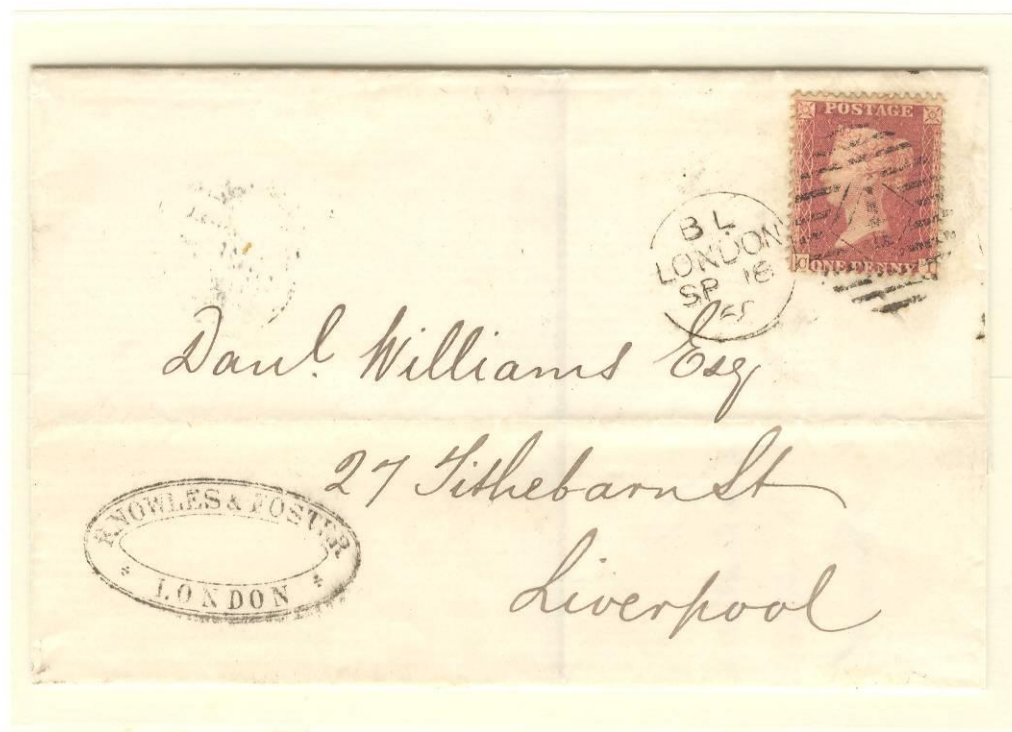 POSTAGE
C ONE PENNY I
BL
LONDON
SP 18
65
Danl. Williams Esq
27 Tithebarn St
Liverpool
KNOWLES & FOSTER
LONDON